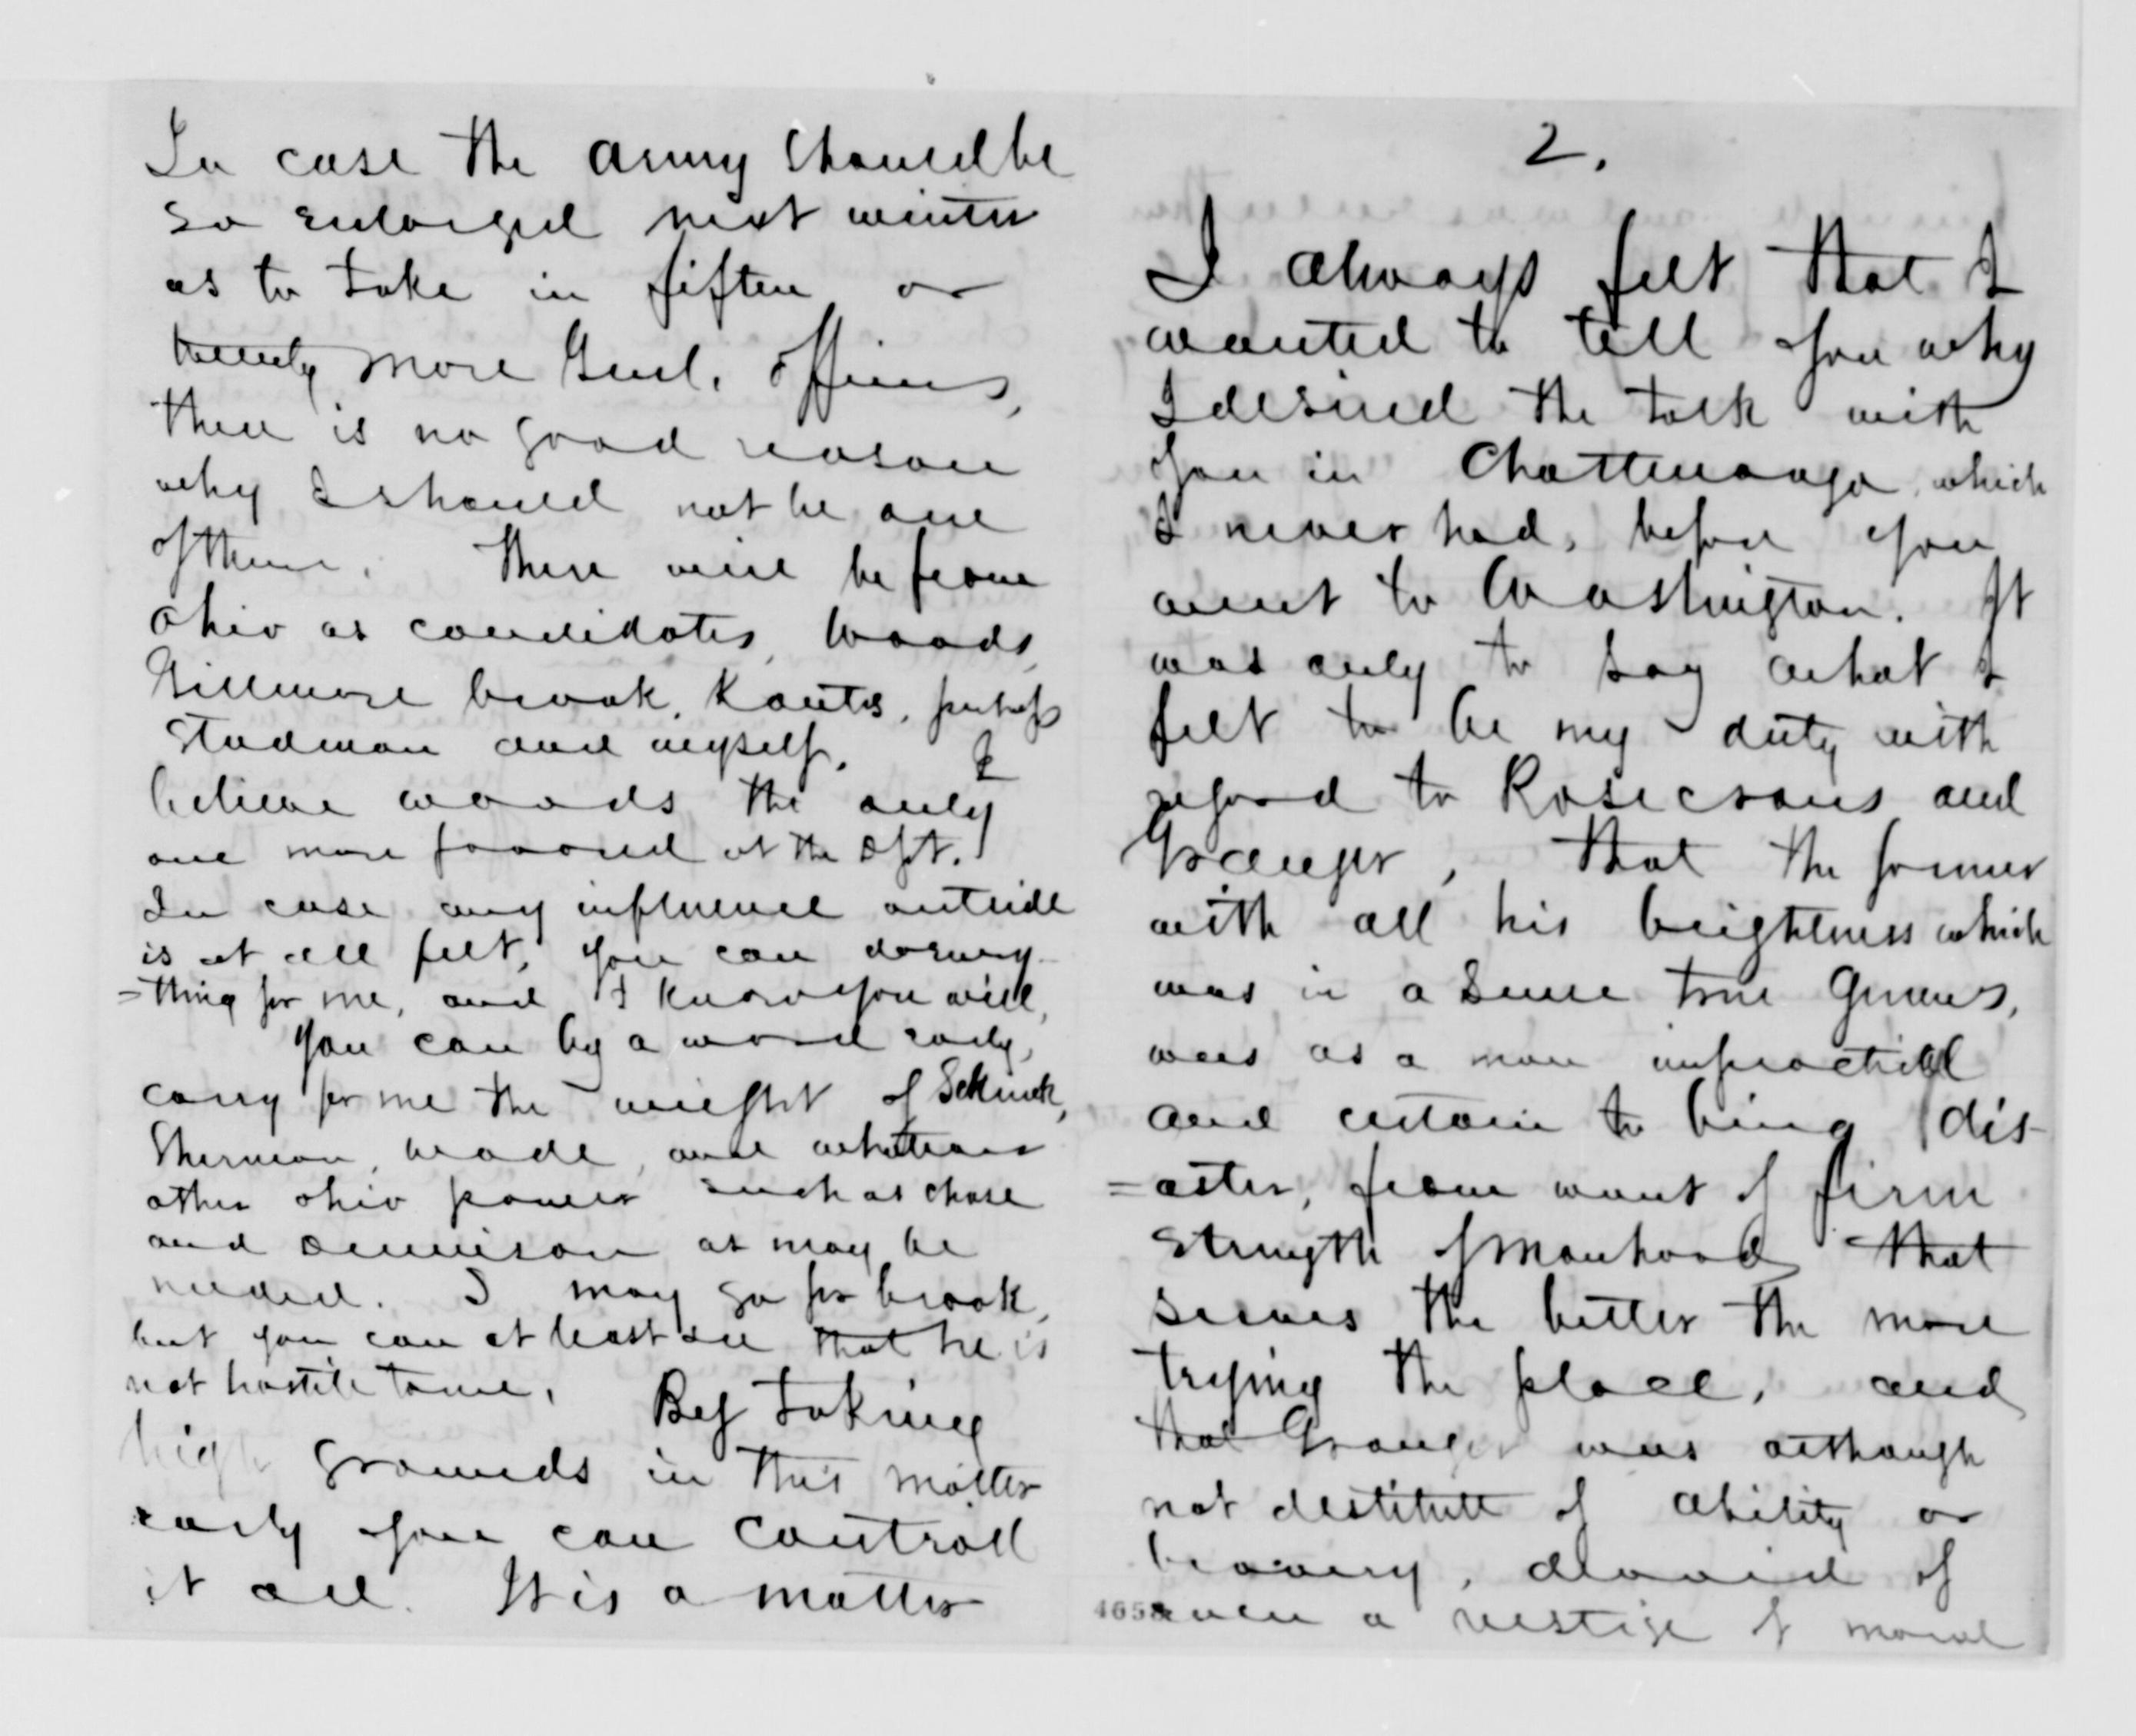 In case the army should be
so enlarged next winter
as to take in fiften or
twenty more Genl. officers,
there is no good reason
why I should not be one
of them. There will be from
Ohio as candidates, Woods,
Gillmore Crook, Kautz, perhaps
Steadman and myself. I
believe Woods the only
one more favored at the Dpt.
In case any influence outside
is at all felt, you can do every-
=thing for me, and I know you will,
You can by a word early,
carry for me the weight of Schenck,
Sherman, Wade, and whatever
other Ohio power such as Chase
and Dennison as may be
needed. I may go for Crook,
but you can at least see that he is
not hostile to me. By taking
high grounds in this matter
early you can controll
it all. It is a matter
2.
I always felt that I
wanted to tell you why
I desired the talk with
you in Chattenooga which
I never had, before you
went to Washington. It
was only to say what I
felt to be my duty with
regard to Rosecrans and
Granger, that the former
with all his brightness which
was in a sense true Genius,
was as a man impractical
and certain to bring dis-
=aster, from want of firm
strength of manhood that
serves the better the more
trying the place, and
that Granger was although
not destitute of ability or
bravery, devoid of
even a vestige of moral
4658